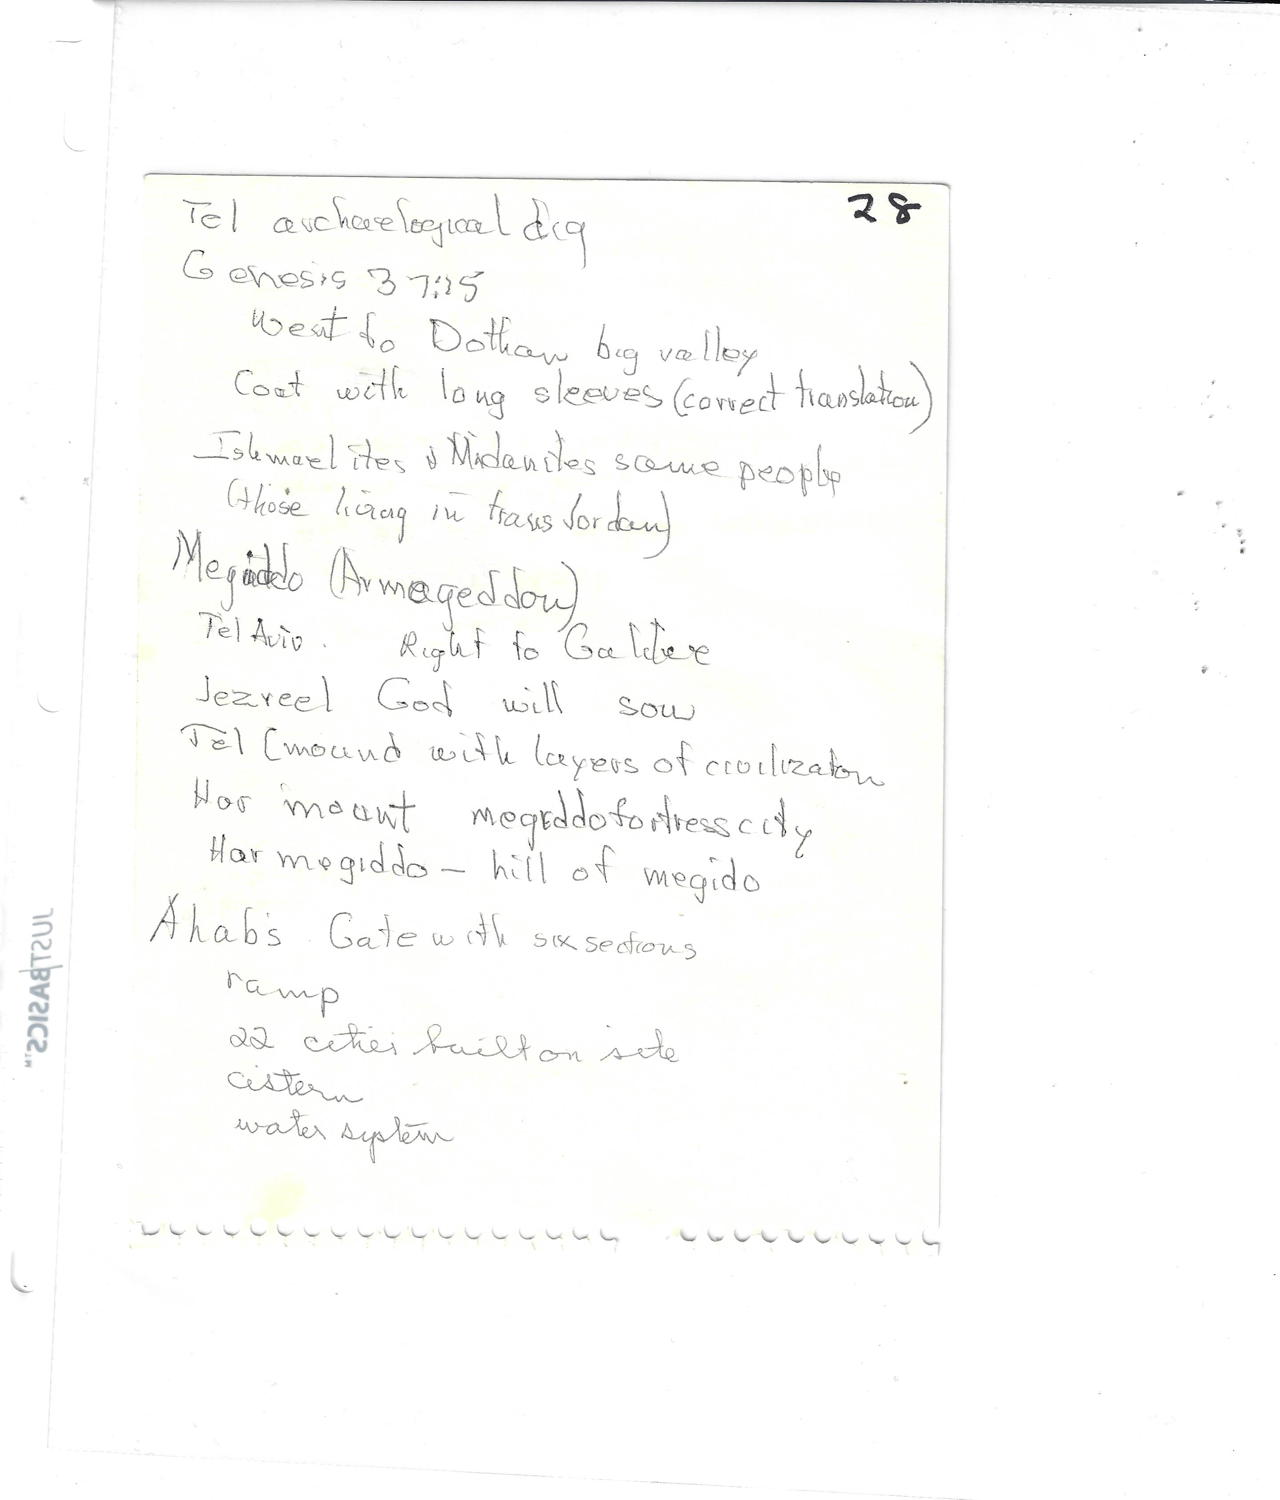 28
Tel archaelogical dig
Genesis 37:25
Went to Dothan big valley
Coat with long sleeves (correct translation)
Ishmaelites & Midanites same people
(those living in trans Jordan)
Megiddo (Armageddon)
Tel Aviv. Right to Galilee
Jezreel God will sow
Tel (mound with layers of civilizaton
Har mount megiddo fortress city
Har megiddo – hill of megido
Ahab's Gate with six sections
ramp
22 cities built on site
cistern
water system
JUSTBASICS™